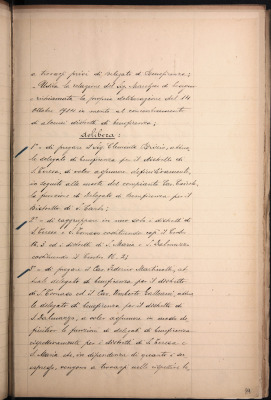 a trovarsi privi di delegato di Beneficenza;
Udita la relazione del Sig.
richiamata la propria deliberazione del 14
Ottobre 1904 in merito al concentramento
di alcuni distretti di beneficenza;
delibera:
1° - di pregare il Sig. Clemente
delegato di beneficenza per il distretto di
S. Teresa, di voler assumere definitivamente,
in seguito alla morte del compianto Cav.
le funzioni di Delegato di Beneficenza per il
Distretto di S. Carlo;
2° - di raggruppare in uno solo i distretti di
S. Teresa e S. Tomaso costituendo così il Centro
N. 3 ed i distretti di S. Maria e S. Dalmazzo
costituendo il Centro N. 2;
3° - di pregare il Cav. Federico Martinolli, at-
tuale delegato di beneficenza per il distretto
di S. Tomaso ed il Cav. Umberto
delegato di beneficenza per il distretto di
S. Dalmazzo, a voler assumere in modo de-
finitivo le funzioni di delegati di beneficenza
rispettivamente per i distretti di S. Teresa e
S. Maria che, in dipendenza di quanto è so-
espresso, vengono a trovarsi nelle rispettive